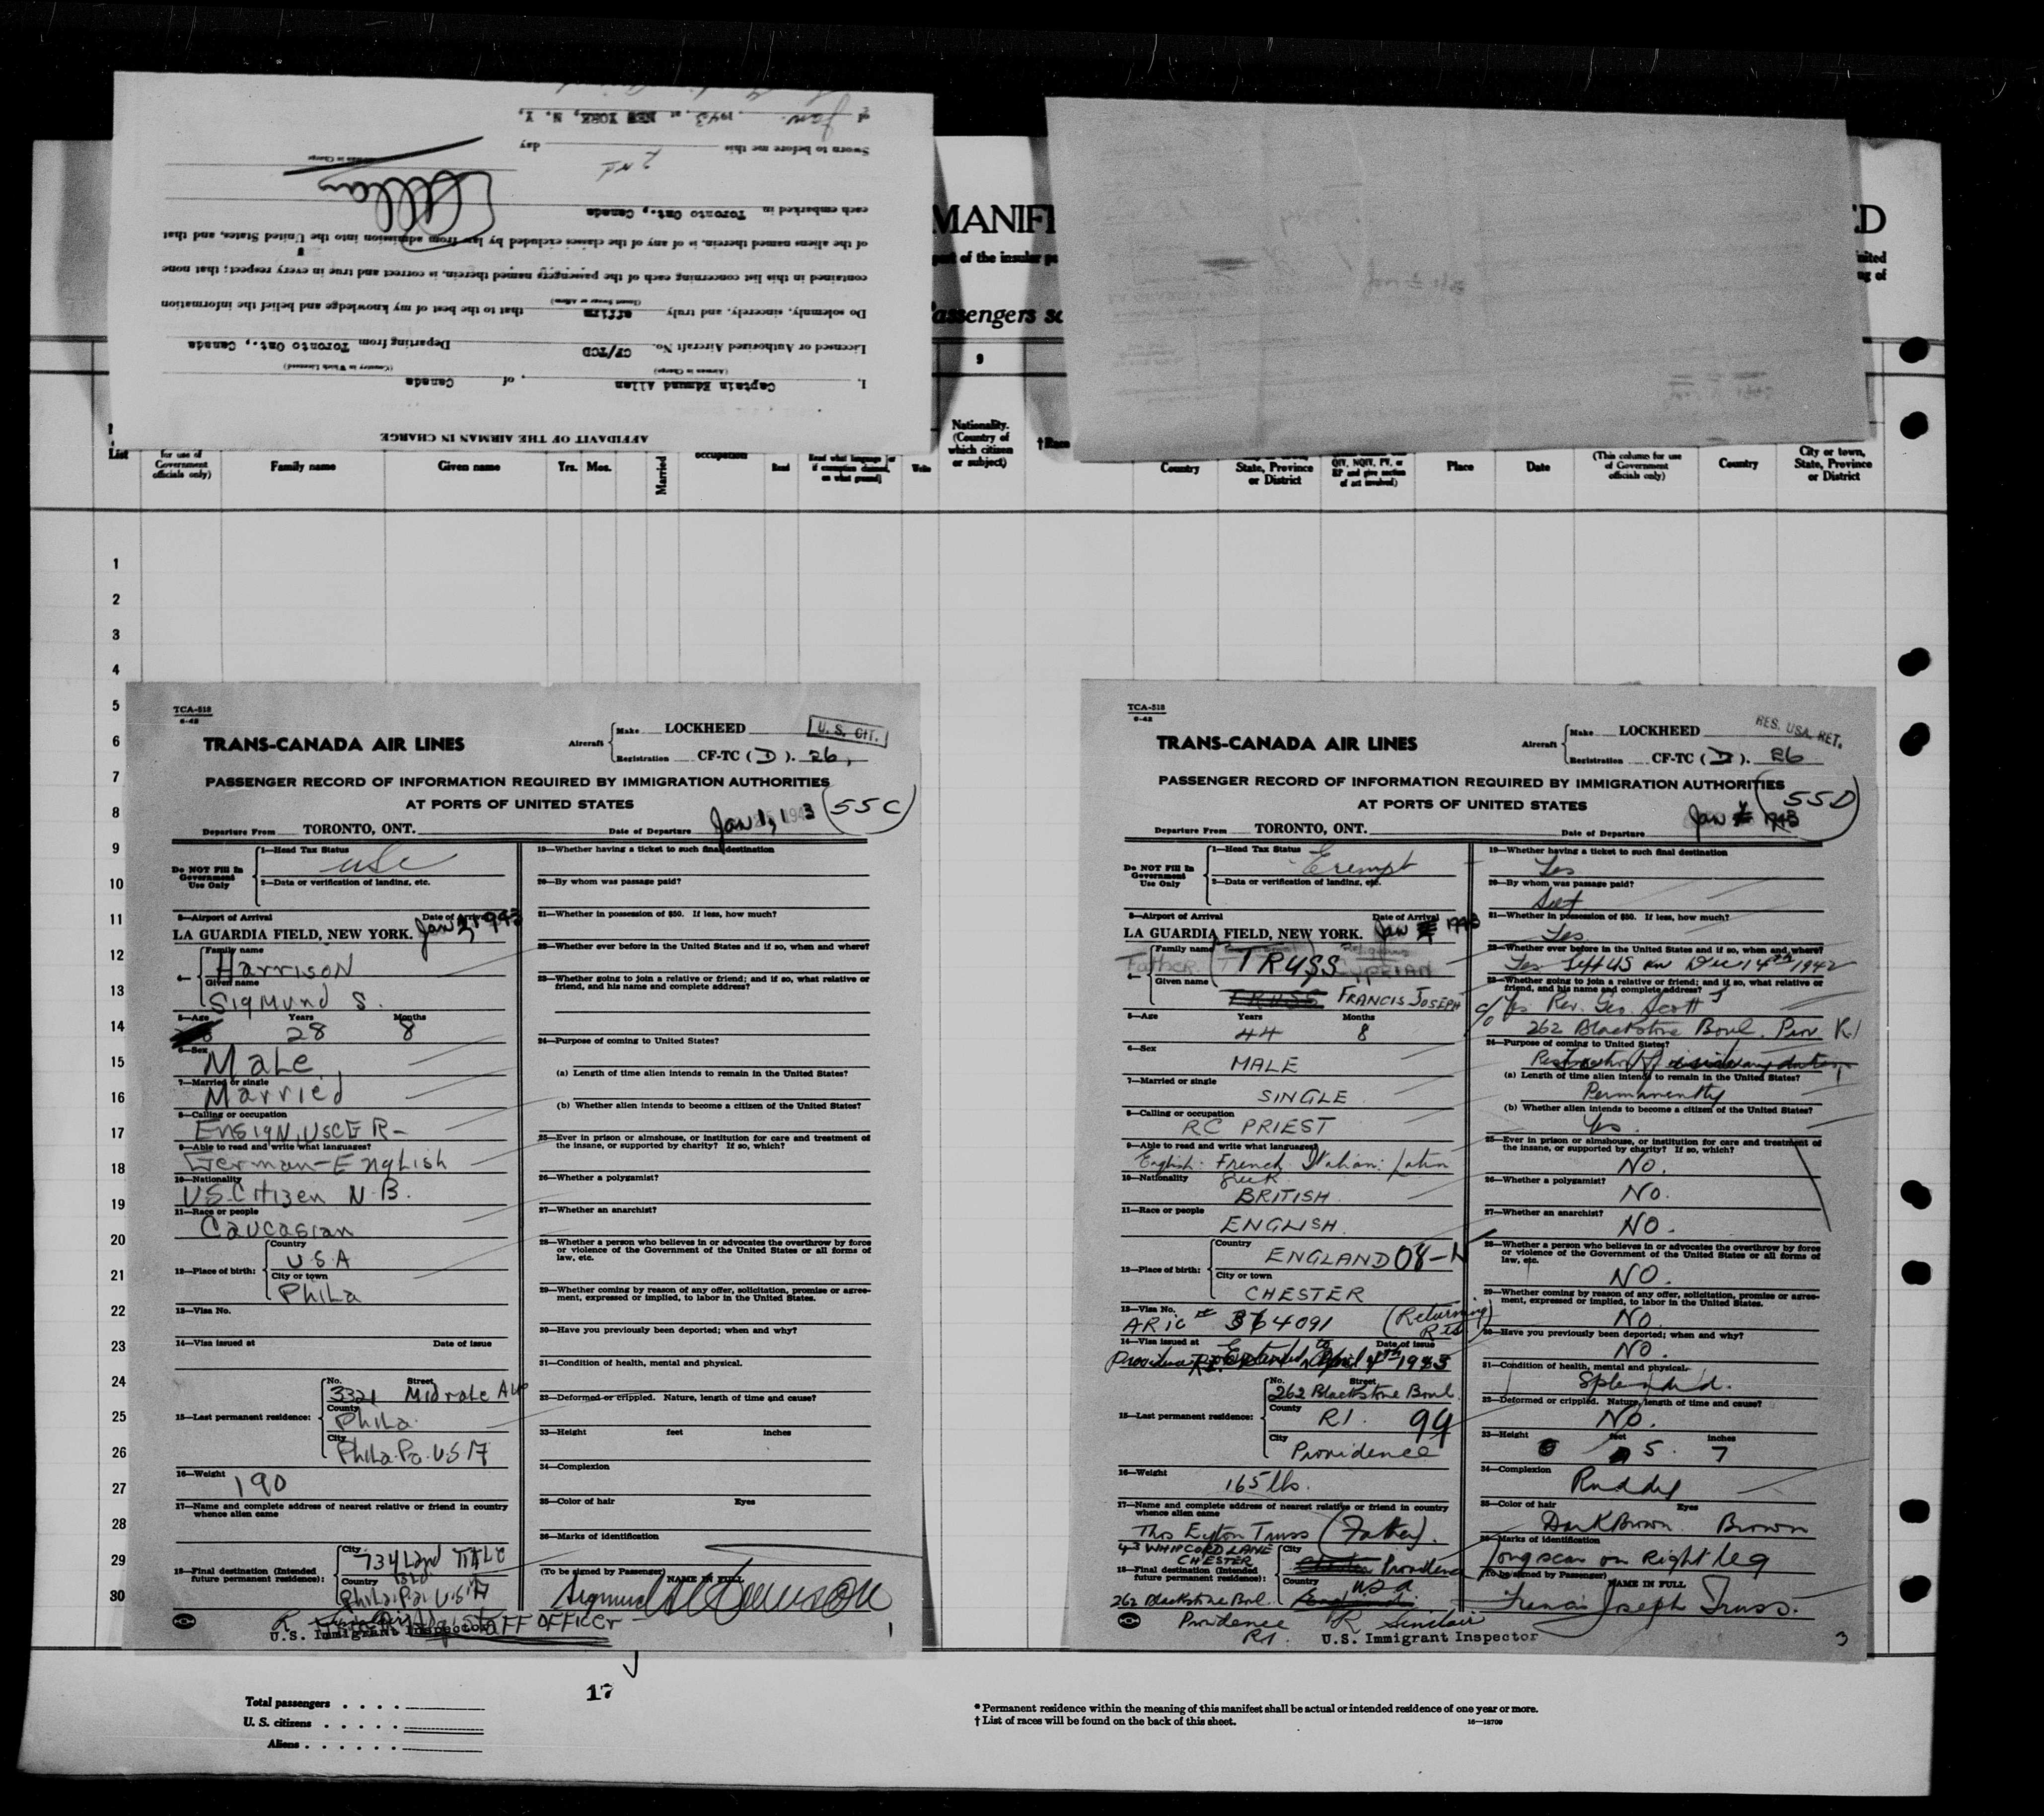 of Jan. , 1943, at NEW YORK, N. Y.,
Sworn to before me this 2ND day
Airman in Charge
each embarked in Toronto Ont., Canada
of the aliens named therein, is of any of the classes excluded by law from admission into the United States, and that
contained in this list concerning each of the passengers named therein, is correct and true in every respect; that none
Do solemnly, sincerely, and truly affirm that to the best of my knowledge and belief the information
(Insert Swear or Affirm)
Licensed or Authorized Aircraft No. CF/TCD Departing from Toronto Ont., Canada
(Airman in Charge) (Country in Which Licensed)
I, Captain Edmund Allan , of Canada
AFFIDAVIT OF THE AIRMAN IN CHARGE
MANIF
ED
port of the insular po
nited
ng of
Passengers sa
9
List
for use of Government officials only)
Family name
Given name
Yrs. Mos.
Married
occupation
Read
Read what language [or if exemption claimed, on what ground]
Write
Nationality. (Country of which citizen or subject)
†Race
Country
State, Province or District
QIV, NQIV, PV, or RP and give section of act involved)
Place
Date
(This column for use of Government officials only)
Country
City or town, State, Province or District
1
2
3
4
5
6
7
8
9
10
11
12
13
14
15
16
17
18
19
20
21
22
23
24
25
26
27
28
29
30
TCA-518
8-42
TRANS-CANADA AIR LINES
Aircraft Make LOCKHEED
Registration CF-TC (D). 26,
U. S. CIT.
PASSENGER RECORD OF INFORMATION REQUIRED BY IMMIGRATION AUTHORITIES
AT PORTS OF UNITED STATES
(55C)
Departure From TORONTO, ONT. Date of Departure Jan 1,
Do NOT Fill In Government Use Only
1—Head Tax Status USC
2—Data or verification of landing, etc.
3—Airport of Arrival Date of Arrival
LA GUARDIA FIELD, NEW YORK. Jan 1943
4— Family name
Harrison
Given name
Sigmund S.
5—Age Years Months
28 8
6—Sex
Male
7—Married or single
Married
8—Calling or occupation
Ensign, USCGR-
9—Able to read and write what languages?
German-English
10—Nationality
US Citizen N.B.
11—Race or people
Caucasian
12—Place of birth: Country
U.S.A
City or town
Phila
13—Visa No.
14—Visa issued at Date of issue
15—Last permanent residence: No. Street
3321 Midvale Ave
County
Phila.
City
Phila. Pa. U.S.A
16—Weight
190
17—Name and complete address of nearest relative or friend in country whence alien came
18—Final destination (Intended future permanent residence): City
734 Land Title
Country Bld
Phila. Pa. U.S.A
R STAFF OFFICER
U.S. Immigrant Inspector
19—Whether having a ticket to such final destination
20—By whom was passage paid?
21—Whether in possession of $50. If less, how much?
22—Whether ever before in the United States and if so, when and where?
23—Whether going to join a relative or friend; and if so, what relative or friend, and his name and complete address?
24—Purpose of coming to United States?
(a) Length of time alien intends to remain in the United States?
(b) Whether alien intends to become a citizen of the United States?
25—Ever in prison or almshouse, or institution for care and treatment of the insane, or supported by charity? If so, which?
26—Whether a polygamist?
27—Whether an anarchist?
28—Whether a person who believes in or advocates the overthrow by force or violence of the Government of the United States or all forms of law, etc.
29—Whether coming by reason of any offer, solicitation, promise or agreement, expressed or implied, to labor in the United States.
30—Have you previously been deported; when and why?
31—Condition of health, mental and physical.
32—Deformed or crippled. Nature, length of time and cause?
33—Height feet inches
34—Complexion
35—Color of hair Eyes
36—Marks of identification
(To be signed by Passenger) NAME IN FULL
Sigmund S. Harrison
1
TCA-518
8-42
TRANS-CANADA AIR LINES
Aircraft Make LOCKHEED
Registration CF-TC (D). 26
RES. USA. RET.
PASSENGER RECORD OF INFORMATION REQUIRED BY IMMIGRATION AUTHORITIES
AT PORTS OF UNITED STATES
(55D)
Departure From TORONTO, ONT. Date of Departure Jan 1943
Do NOT Fill In Government Use Only
1—Head Tax Status Exempt
2—Data or verification of landing, etc.
3—Airport of Arrival Date of Arrival
LA GUARDIA FIELD, NEW YORK. Jan 1943
4— Family name
Father TRUSS
Given name
TRUSS FRANCIS JOSEPH
5—Age Years Months
44 8
6—Sex
MALE
7—Married or single
SINGLE
8—Calling or occupation
RC PRIEST
9—Able to read and write what languages?
English: French: Italian: Latin
Greek
10—Nationality
BRITISH
11—Race or people
ENGLISH
12—Place of birth: Country
ENGLAND 08-
City or town
CHESTER
13—Visa No.
ARIC # 364091 (Returning Res)
14—Visa issued at Date of issue
Providence R.I. Extended to April 4th
15—Last permanent residence: No. Street
262 Blackstone Boul.
County
RI. 99
City
Providence
16—Weight
165 lbs.
17—Name and complete address of nearest relative or friend in country whence alien came
Thos Eyton Truss (Father).
43 WHIPCORD LANE
CHESTER
18—Final destination (Intended future permanent residence): City
Providence
Country
USA
262 Blackstone Boul.
Providence
R.I.
R Sinclair
U.S. Immigrant Inspector
19—Whether having a ticket to such final destination
Yes
20—By whom was passage paid?
Self
21—Whether in possession of $50. If less, how much?
Yes
22—Whether ever before in the United States and if so, when and where?
Yes Left US on Dec 14th 1942
23—Whether going to join a relative or friend; and if so, what relative or friend, and his name and complete address?
c/o Yes Rev. Geo. Scott
262 Blackstone Boul. Prov. R.I
24—Purpose of coming to United States?
(a) Length of time alien intends to remain in the United States?
Permanently
(b) Whether alien intends to become a citizen of the United States?
Yes.
25—Ever in prison or almshouse, or institution for care and treatment of the insane, or supported by charity? If so, which?
NO.
26—Whether a polygamist?
NO.
27—Whether an anarchist?
NO.
28—Whether a person who believes in or advocates the overthrow by force or violence of the Government of the United States or all forms of law, etc.
NO.
29—Whether coming by reason of any offer, solicitation, promise or agreement, expressed or implied, to labor in the United States.
NO.
30—Have you previously been deported; when and why?
NO.
31—Condition of health, mental and physical.
Splendid.
32—Deformed or crippled. Nature, length of time and cause?
NO.
33—Height feet inches
5. 7
34—Complexion
Ruddy
35—Color of hair Eyes
Dark Brown. Brown
36—Marks of identification
long scar on Right leg
(To be signed by Passenger) NAME IN FULL
Francis Joseph Truss.
3
17
Total passengers
U. S. citizens
Aliens
* Permanent residence within the meaning of this manifest shall be actual or intended residence of one year or more.
† List of races will be found on the back of this sheet.
16—18709